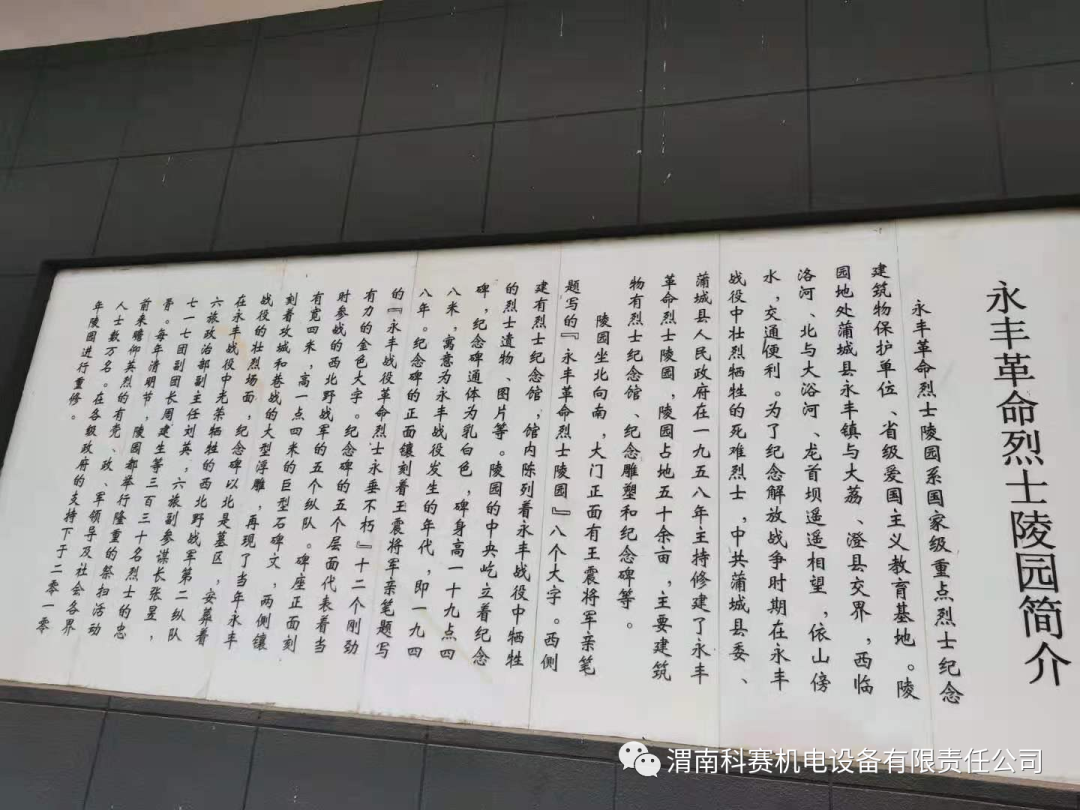 永丰革命烈士陵园简介
永丰革命烈士陵园系国家级重点烈士纪念
建筑物保护单位、省级爱国主义教育基地。陵
园地处蒲城县永丰镇与大荔、澄县交界，西临
洛河、北与大浴河、龙首坝遥遥相望，依山傍
水，交通便利。为了纪念解放战争时期在永丰
战役中壮烈牺牲的死难烈士，中共蒲城县委、
蒲城县人民政府在一九五八年主持修建了永丰
革命烈士陵园，陵园占地五十余亩，主要建筑
物有烈士纪念馆、纪念雕塑和纪念碑等。
陵园坐北向南，大门正面有王震将军亲笔
题写的『永丰革命烈士陵园』八个大字。西侧
建有烈士纪念馆，馆内陈列着永丰战役中牺牲
的烈士遗物、图片等。陵园的中央屹立着纪念
碑，纪念碑通体为乳白色，碑身高一十九点四
八米，寓意为永丰战役发生的年代，即一九四
八年。纪念碑的正面镶刻着王震将军亲笔题写
的『永丰战役革命烈士永垂不朽』十二个刚劲
有力的金色大字。纪念碑的五个层面代表着当
时参战的西北野战军的五个纵队。碑座正面刻
有宽四米，高一点四米的巨型石碑文，两侧镶
刻着攻城和巷战的大型浮雕，再现了当年永丰
战役的壮烈场面，纪念碑以北是墓区，安葬着
在永丰战役中光荣牺牲的西北野战军第二纵队
六旅政治部副主任刘英，六旅副参谋长张昱，
七一七团副团长周建生等三百三十名烈士的忠
骨。每年清明节，陵园都举行隆重的祭扫活动
前来瞻仰英烈的有党、政、军领导及社会各界
人士数万名。在各级政府的支持下于二零一零
年陵园进行重修。
渭南科赛机电设备有限责任公司